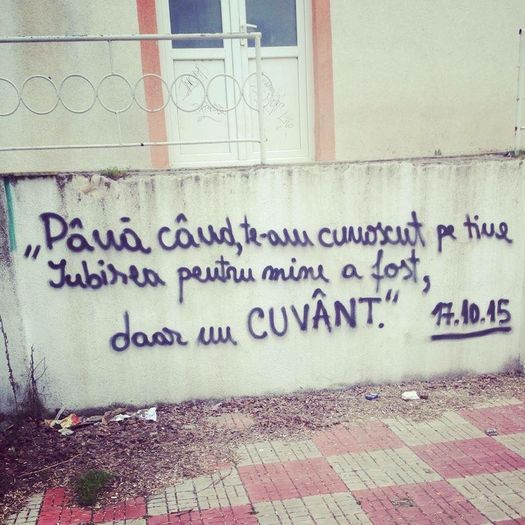 „Până când, te-am cunoscut pe tine
Iubirea pentru mine a fost,
doar un CUVÂNT.“ 17.10.15